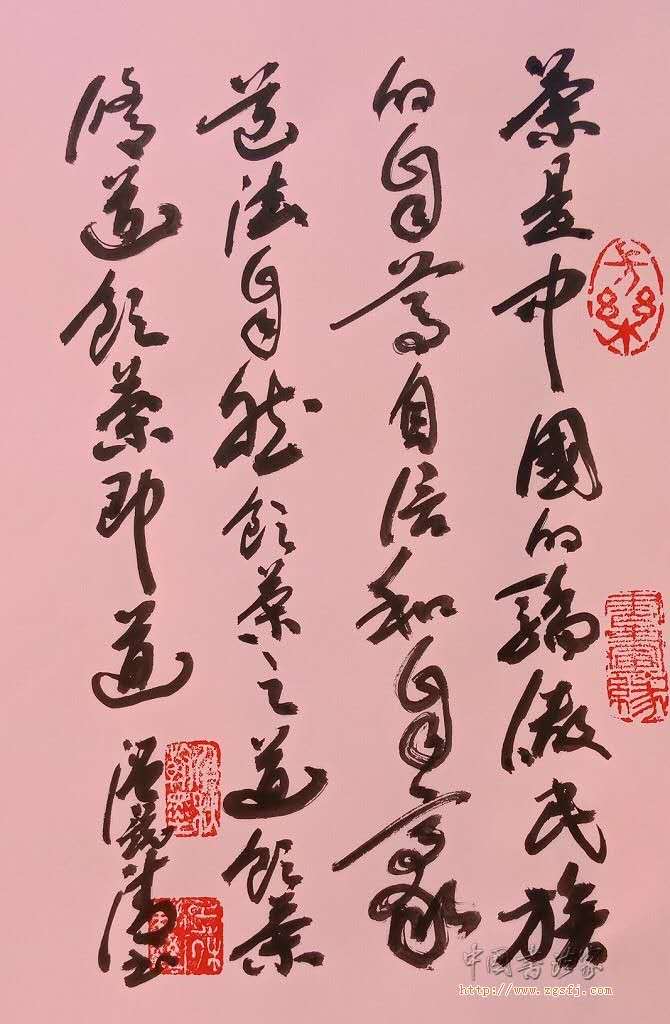 茶是中國的驕傲民族
的自尊自信和自豪
道法自然飲茶之道飲茶
脩道飲茶即道
中國书法家
http://www.zgsfj.com